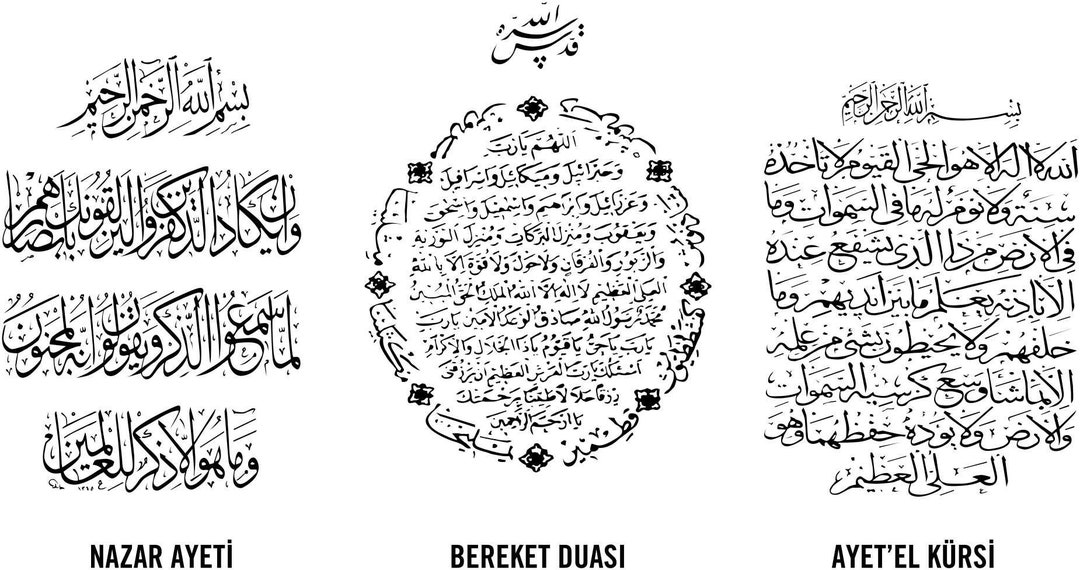 بسم الله الرحمن الرحيم
وان يكاد الذين كفروا ليزلقونك بابصارهم
لما سمعوا الذكر ويقولون انه لمجنون
وما هو الا ذكر للعالمين
NAZAR AYETİ
الله
قدس سره
اللهم يارب
وجبرائيل وميكائيل واسرافيل
وعزرائيل وابراهيم واسمعيل واسحق
ويعقوب ومنزل البركات ومنزل التورية
والزبور والفرقان ولا حول ولا قوة الا بالله
العلى العظيم لا اله الا الله الملك الحق المبين
محمد رسول الله صادق الوعد الامين يارب
يارب ياحى ياقيوم ياذا الجلال والاكرام
اسئلك يارب العرش العظيم ان ترزقنى
رزقا حلالا طيبا برحمتك
يا ارحم الراحمين
يمليخا
قطمير
BEREKET DUASI
بسم الله الرحمن الرحيم
الله لا اله الا هو الحى القيوم لا تأخذه
سنة ولا نوم له ما فى السموات وما
فى الارض من ذا الذى يشفع عنده
الا باذنه يعلم ما بين ايديهم وما
خلفهم ولا يحيطون بشئ من علمه
الا بما شاء وسع كرسيه السموات
والارض ولا يوده حفظهما وهو
العلى العظيم
AYET’EL KÜRSİ